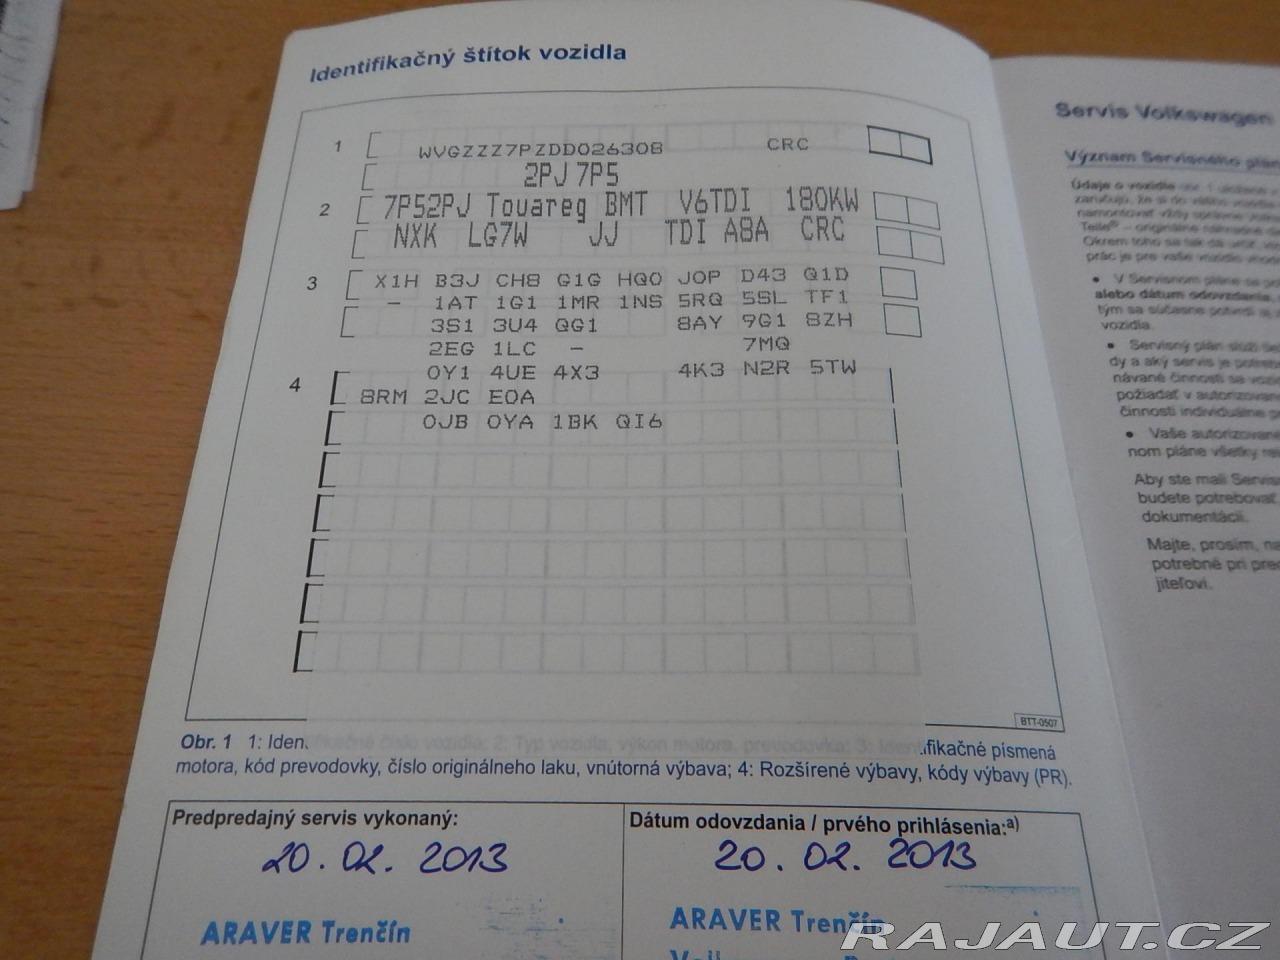 Identifikačný štítok vozidla
1 WVGZZZ7PZDD026308 CRC
2PJ 7P5
2 7P52PJ Touareg BMT V6TDI 180KW
NXK LG7W JJ TDI A8A CRC
3 X1H B3J CH8 G1G HQ0 J0P D43 Q1D
– 1AT 1G1 1MR 1NS 5RQ 5SL TF1
3S1 3U4 QG1 8AY 9G1 8ZH
2EG 1LC – 7MQ
4 0Y1 4UE 4X3 4K3 N2R 5TW
8RM 2JC E0A
0JB 0YA 1BK QI6
BTT-0507
Obr. 1 1: Identifikačné číslo vozidla; 2: Typ vozidla, výkon motora, prevodovka; 3: Identifikačné písmená
motora, kód prevodovky, číslo originálneho laku, vnútorná výbava; 4: Rozšírené výbavy, kódy výbavy (PR).
Predpredajný servis vykonaný:
20.02.2013
ARAVER Trenčín
Dátum odovzdania / prvého prihlásenia:a)
20.02.2013
ARAVER Trenčín
Servis Volkswagen
Význam Servisného
Údaje o vozidle
• V Servisnom pláne sa
alebo dátum odovzdania,
tým sa súčasne potvrdí aj
vozidla.
• Servisný plán slúži
dy a aký servis je
návané činnosti sa
požiadať v
činnosti individuálne
• Vaše
nom pláne všetky
Aby ste mali
budete potrebovať
dokumentácii.
Majte, prosím,
potrebné pri
jiteľovi.
RAJAUT.CZ